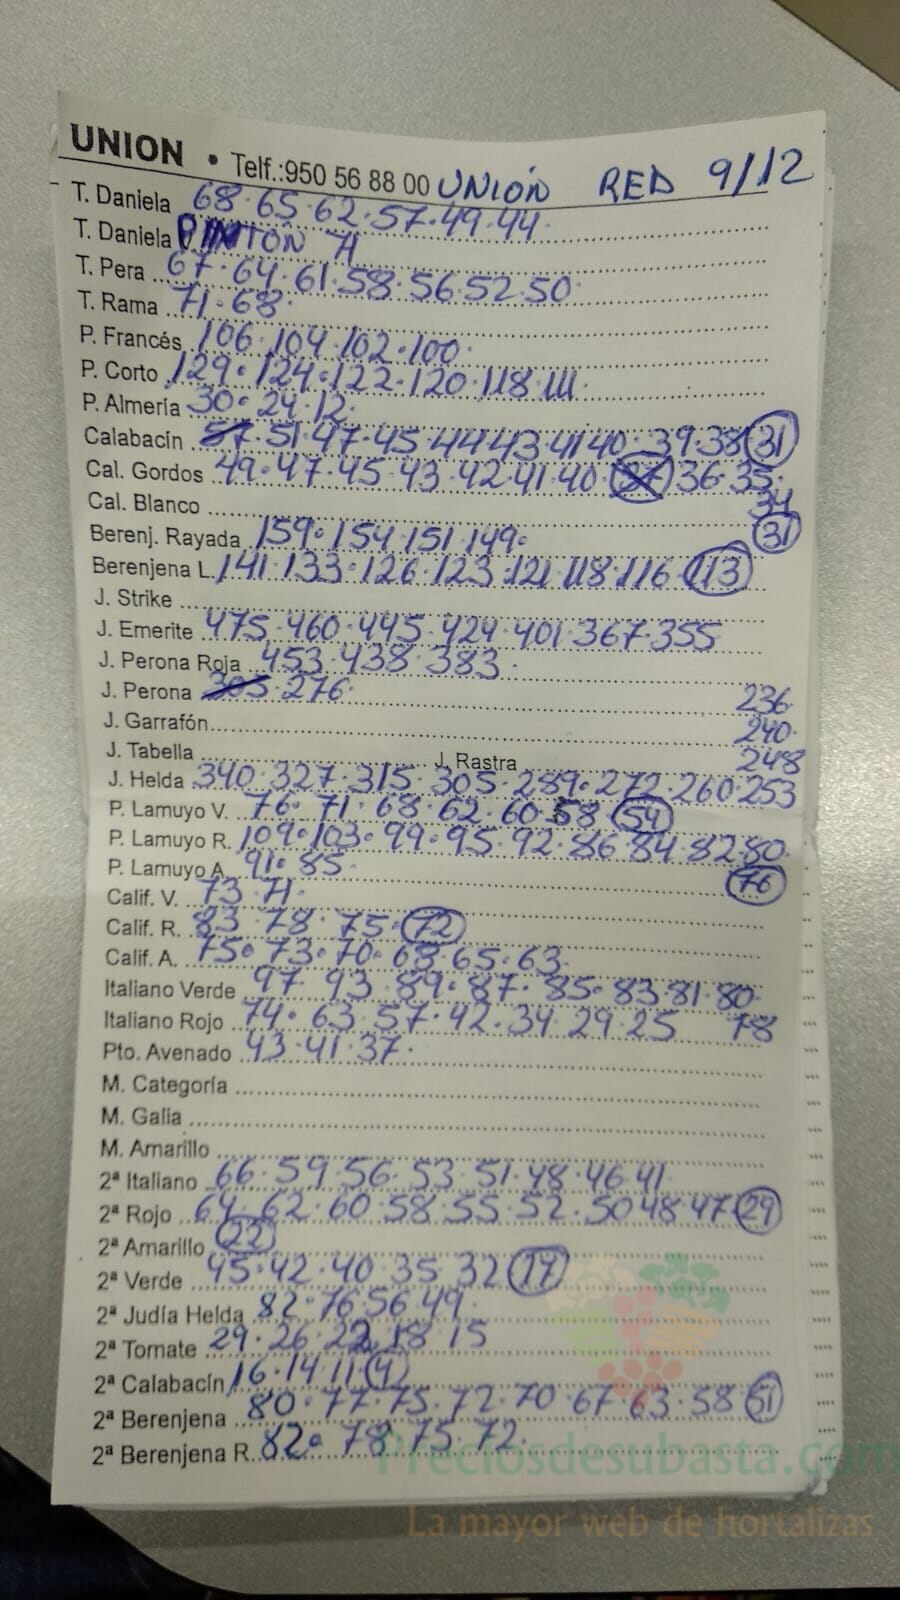 UNION • Telf.:950 56 88 00 UNIÓN RED 9/12
T. Daniela 68·65·62·57·49·44·
T. Daniela PINTÓN 71
T. Pera 67·64·61·58·56·52·50·
T. Rama 71·68·
P. Francés 106·104·102·100·
P. Corto 129·124·122·120·118·111·
P. Almería 30·24·12·
Calabacín 57·51·47·45·44·43·41·40·39·38 31
Cal. Gordos 49·47·45·43·42·41·40· 37 36·35·
34
Cal. Blanco
31
Berenj. Rayada 159·154·151·149·
Berenjena L. 141·133·126·123·121·118·116 113
J. Strike
J. Emerite 475·460·445·424·401·367·355
J. Perona Roja 453·438·383·
J. Perona 305·276· 236·
J. Garrafón 240·
J. Tabella J. Rastra 248
J. Helda 340·327·315·305·289·272·260·253
P. Lamuyo V. 76·71·68·62·60·58 54
P. Lamuyo R. 109·103·99·95·92·86·84·82·80·
P. Lamuyo A. 91·85· 76
Calif. V. 73·71·
Calif. R. 83·78·75· 72
Calif. A. 75·73·70·68·65·63·
Italiano Verde 97·93·89·87·85·83·81·80·
Italiano Rojo 74·63·57·42·34·29·25 78
Pto. Avenado 43·41·37·
M. Categoría
M. Galia
M. Amarillo
2ª Italiano 66·59·56·53·51·48·46·41
2ª Rojo 64·62·60·58·55·52·50·48·47 29
2ª Amarillo 22
2ª Verde 45·42·40·35·32 17
2ª Judía Helda 82·76·56·49·
2ª Tomate 29·26·22·18·15
2ª Calabacín 16·14·11 4
2ª Berenjena 80·77·75·72·70·67·63·58 51
2ª Berenjena R. 82·78·75·72·
Preciosdesubasta.com
La mayor web de hortalizas